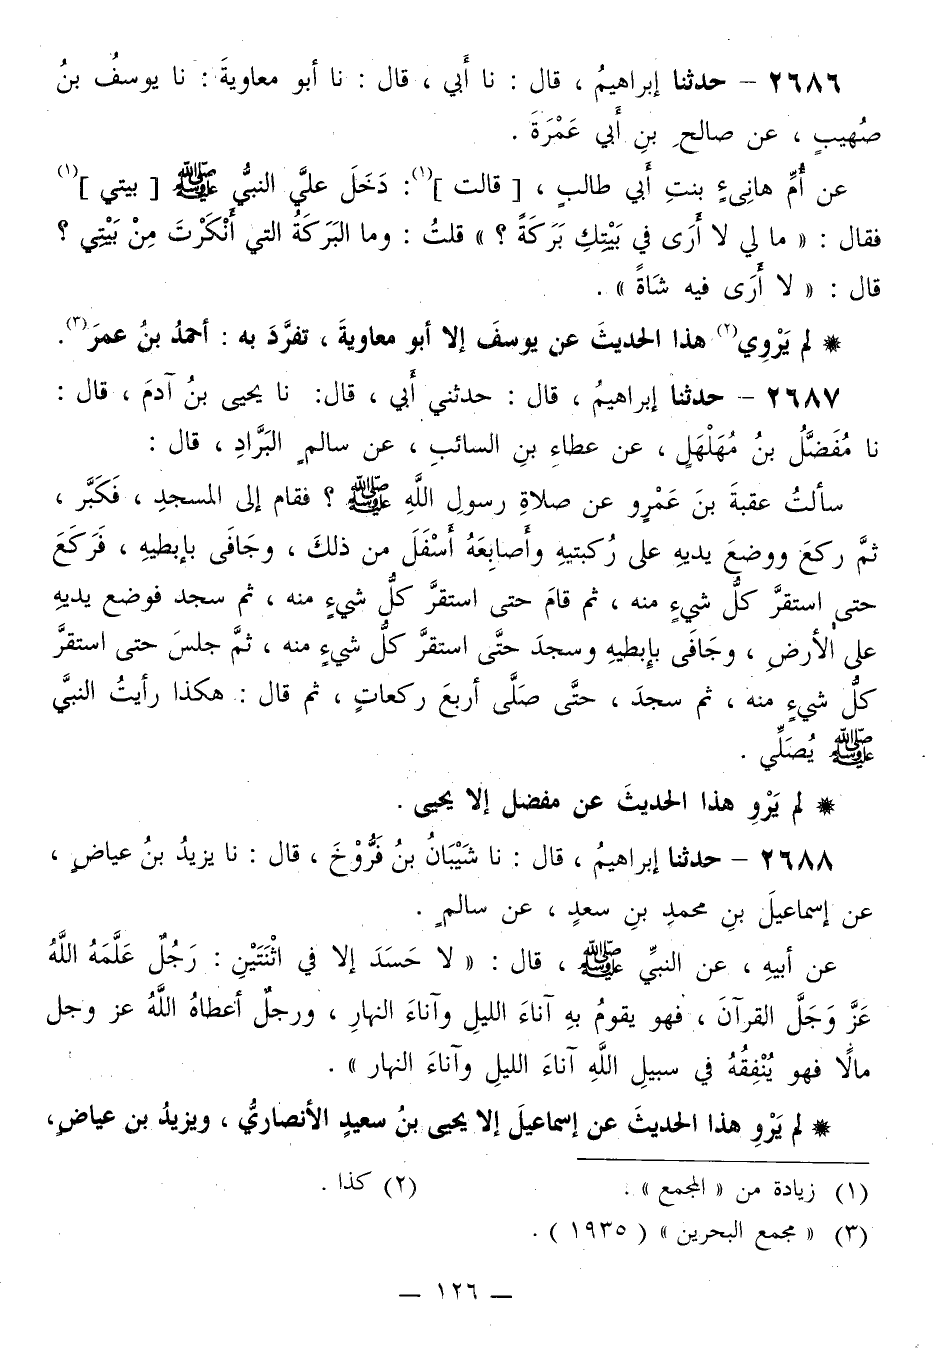 ٢٦٨٦ – حدثنا إبراهيمُ ، قال : نا أَبي ، قال : نا أبو معاويةَ : نا يوسفُ بنُ
صُهيبٍ ، عن صالحِ بنِ أَبي عَمْرَةَ .
عن أُمِّ هانىءٍ بنتِ أَبي طالبٍ ، [ قالت ](١): دَخَلَ عليَّ النبيُّ ﷺ [ بيتي ](١)
فقال : « ما لي لا أَرَى في بَيْتِكِ بَرَكَةً ؟ » قلتُ : وما البَرَكَةُ التي أَنْكَرْتَ مِنْ بَيْتِي ؟
قال : « لا أَرَى فيه شَاةً » .
* لم يَرْوِي(٢) هذا الحديثَ عن يوسفَ إلا أبو معاويةَ ، تفرَّدَ به : أحمدُ بنُ عمرَ(٣).
٢٦٨٧ – حدثنا إبراهيمُ ، قال : حدثني أَبي ، قال: نا يحيى بنُ آدمَ ، قال :
نا مُفَضَّلُ بنُ مُهَلْهَلٍ ، عن عطاءِ بنِ السائبِ ، عن سالمٍ البَرَّادِ ، قال :
سألتُ عقبةَ بنَ عَمْرٍو عن صلاةِ رسولِ اللَّهِ ﷺ ؟ فقام إلى المسجدِ ، فَكَبَّر ،
ثمَّ ركعَ ووضعَ يديهِ على رُكبتيهِ وأَصابِعَهُ أَسْفَلَ من ذلكَ ، وجَافَى بإبطيهِ ، فَرَكَعَ
حتى استقرَّ كلُّ شيءٍ منه ، ثم قامَ حتى استقرَّ كلُّ شيءٍ منه ، ثم سجد فوضع يديهِ
على الأرضِ ، وجَافَى بإبطيهِ وسجدَ حتَّى استقرَّ كلُّ شيءٍ منه ، ثمَّ جلسَ حتى استقرَّ
كلُّ شيءٍ منه ، ثم سجدَ ، حتَّى صلَّى أربعَ ركعاتٍ ، ثم قال : هكذا رأيتُ النبيَّ
ﷺ يُصَلِّي .
* لم يَرْوِ هذا الحديثَ عن مفضل إلا يحيى .
٢٦٨٨ – حدثنا إبراهيمُ ، قال : نا شَيْبَانُ بنُ فَرُّوْخَ ، قال : نا يزيدُ بنُ عياضٍ ،
عن إسماعيلَ بنِ محمدِ بنِ سعدٍ ، عن سالمٍ .
عن أبيهِ ، عن النبيِّ ﷺ ، قال : « لا حَسَدَ إلا في اثْنَتَيْنِ : رَجُلٌ عَلَّمَهُ اللَّهُ
عَزَّ وَجَلَّ القرآنَ ، فهو يقومُ بهِ آناءَ الليلِ وآناءَ النهارِ ، ورجلٌ أعطاهُ اللَّهُ عز وجل
مالًا فهو يُنْفِقُهُ في سبيلِ اللَّهِ آناءَ الليلِ وآناءَ النهار » .
* لم يَرْوِ هذا الحديثَ عن إسماعيلَ إلا يحيى بنُ سعيدٍ الأنصاريُّ ، ويزيدُ بن عياضٍ،
(١) زيادة من « المجمع » . (٢) كذا .
(٣) « مجمع البحرين » ( ١٩٣٥ ) .
— ١٢٦ —